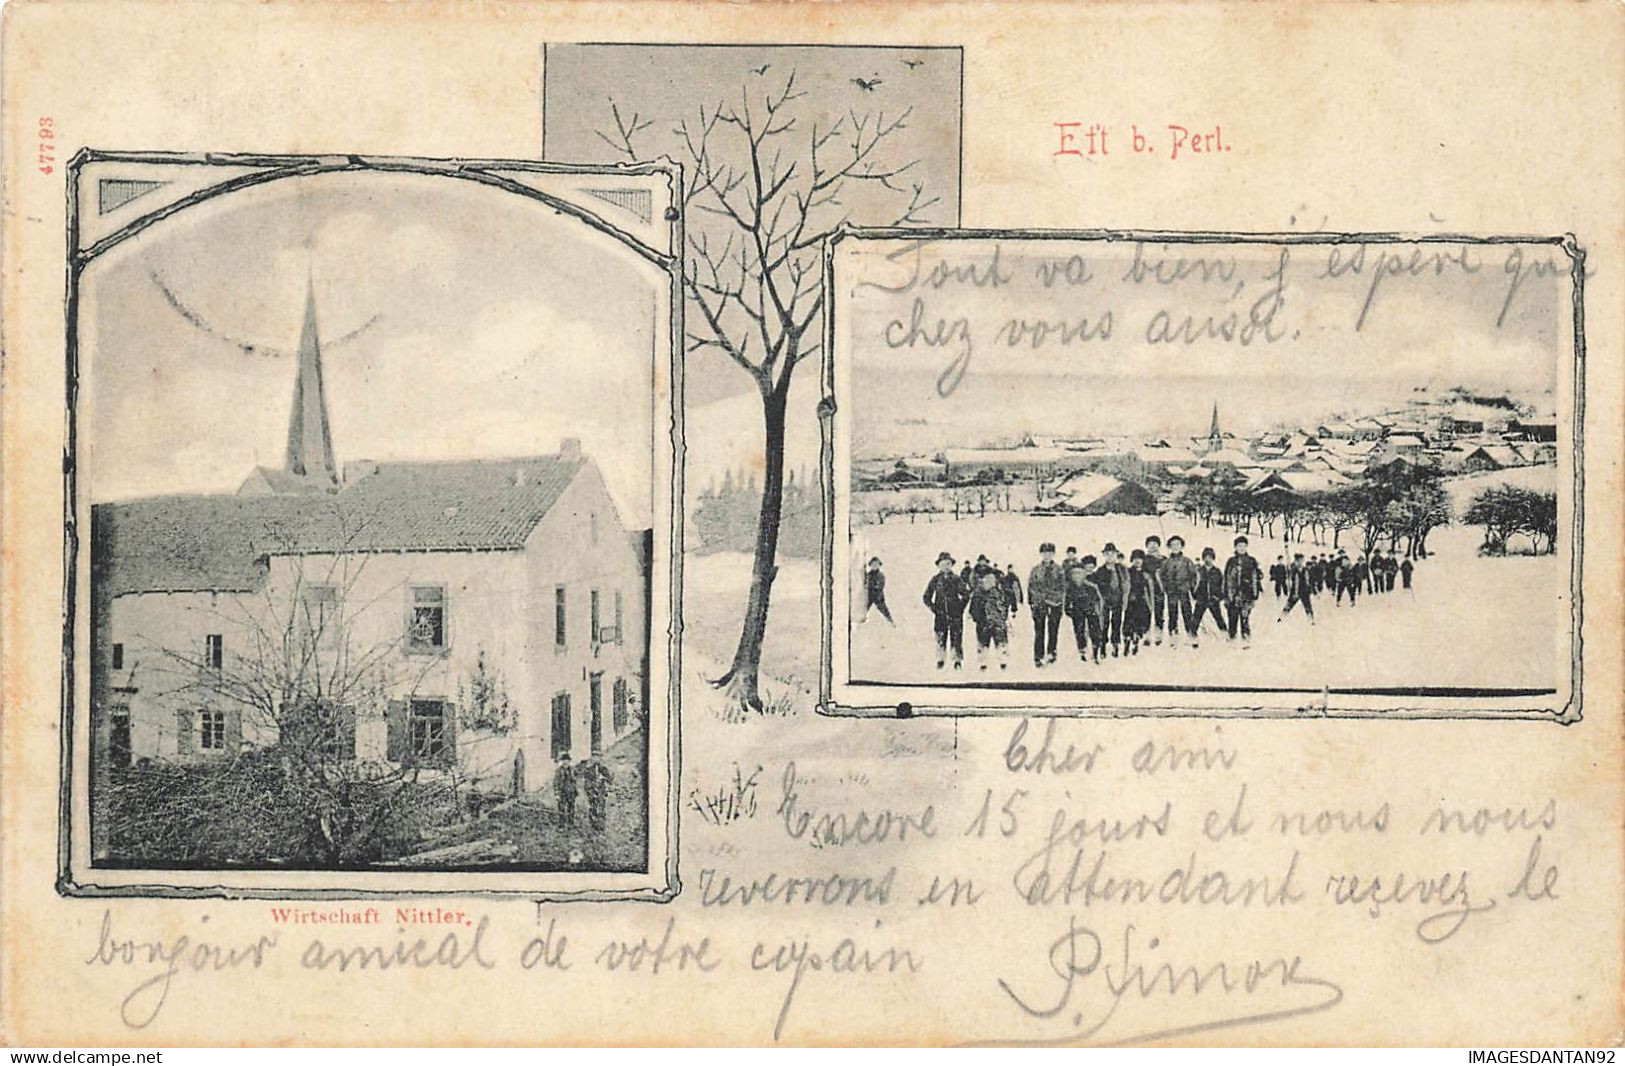 47793
Eft b. Perl.
Tout va bien, j'espère que
chez vous aussi.
Cher ami
Encore 15 jours et nous nous
reverrons en attendant reçevez le
bonjour amical de votre copain
P. Simon
Wirtschaft Nittler.
delcampe.net
IMAGESDANTAN92